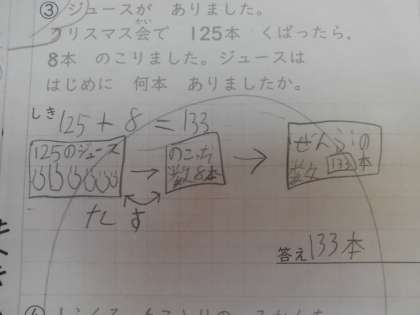 ③ ジュースが ありました。
クリスマス会で 125本 くばったら、
かい
8本 のこりました。ジュースは
はじめに 何本 ありましたか。
しき 125+8=133
125のジュース
のこった
数8本
ぜんぶの
数 133本
たす
答え 133本